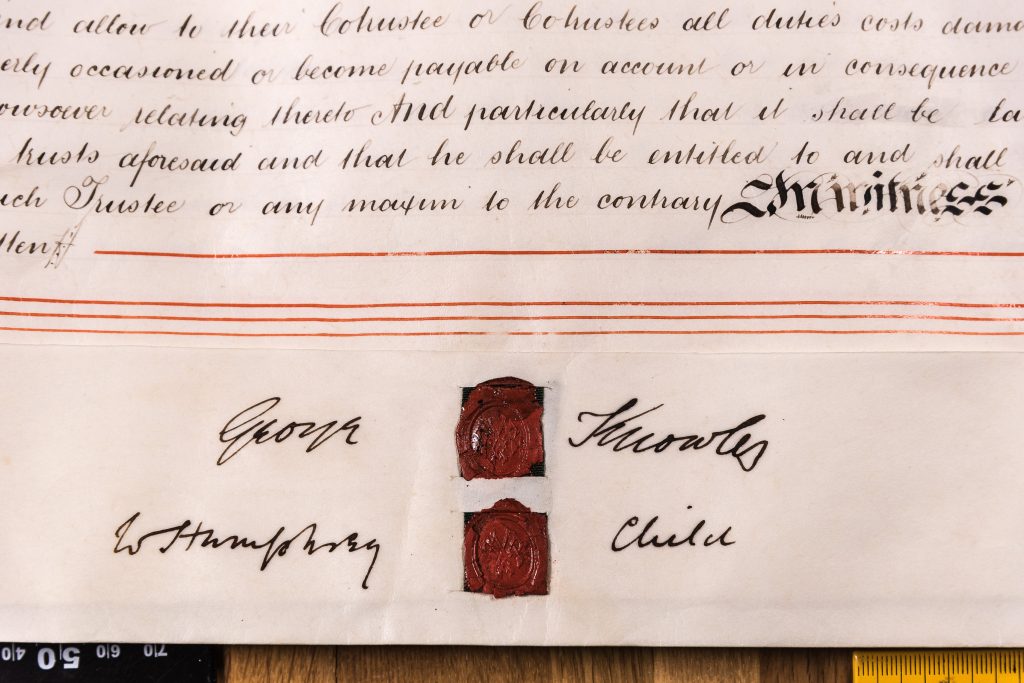 and allow to their Cotrustee or Cotrustees all duties costs dama
erly occasioned or become payable on account or in consequence
owsoever relating thereto And particularly that it shall be la
trusts aforesaid and that he shall be entitled to and shall
uch Trustee or any maxim to the contrary In witness
tten
George Knowles
W Humphrey Child
0|4 50 60 70